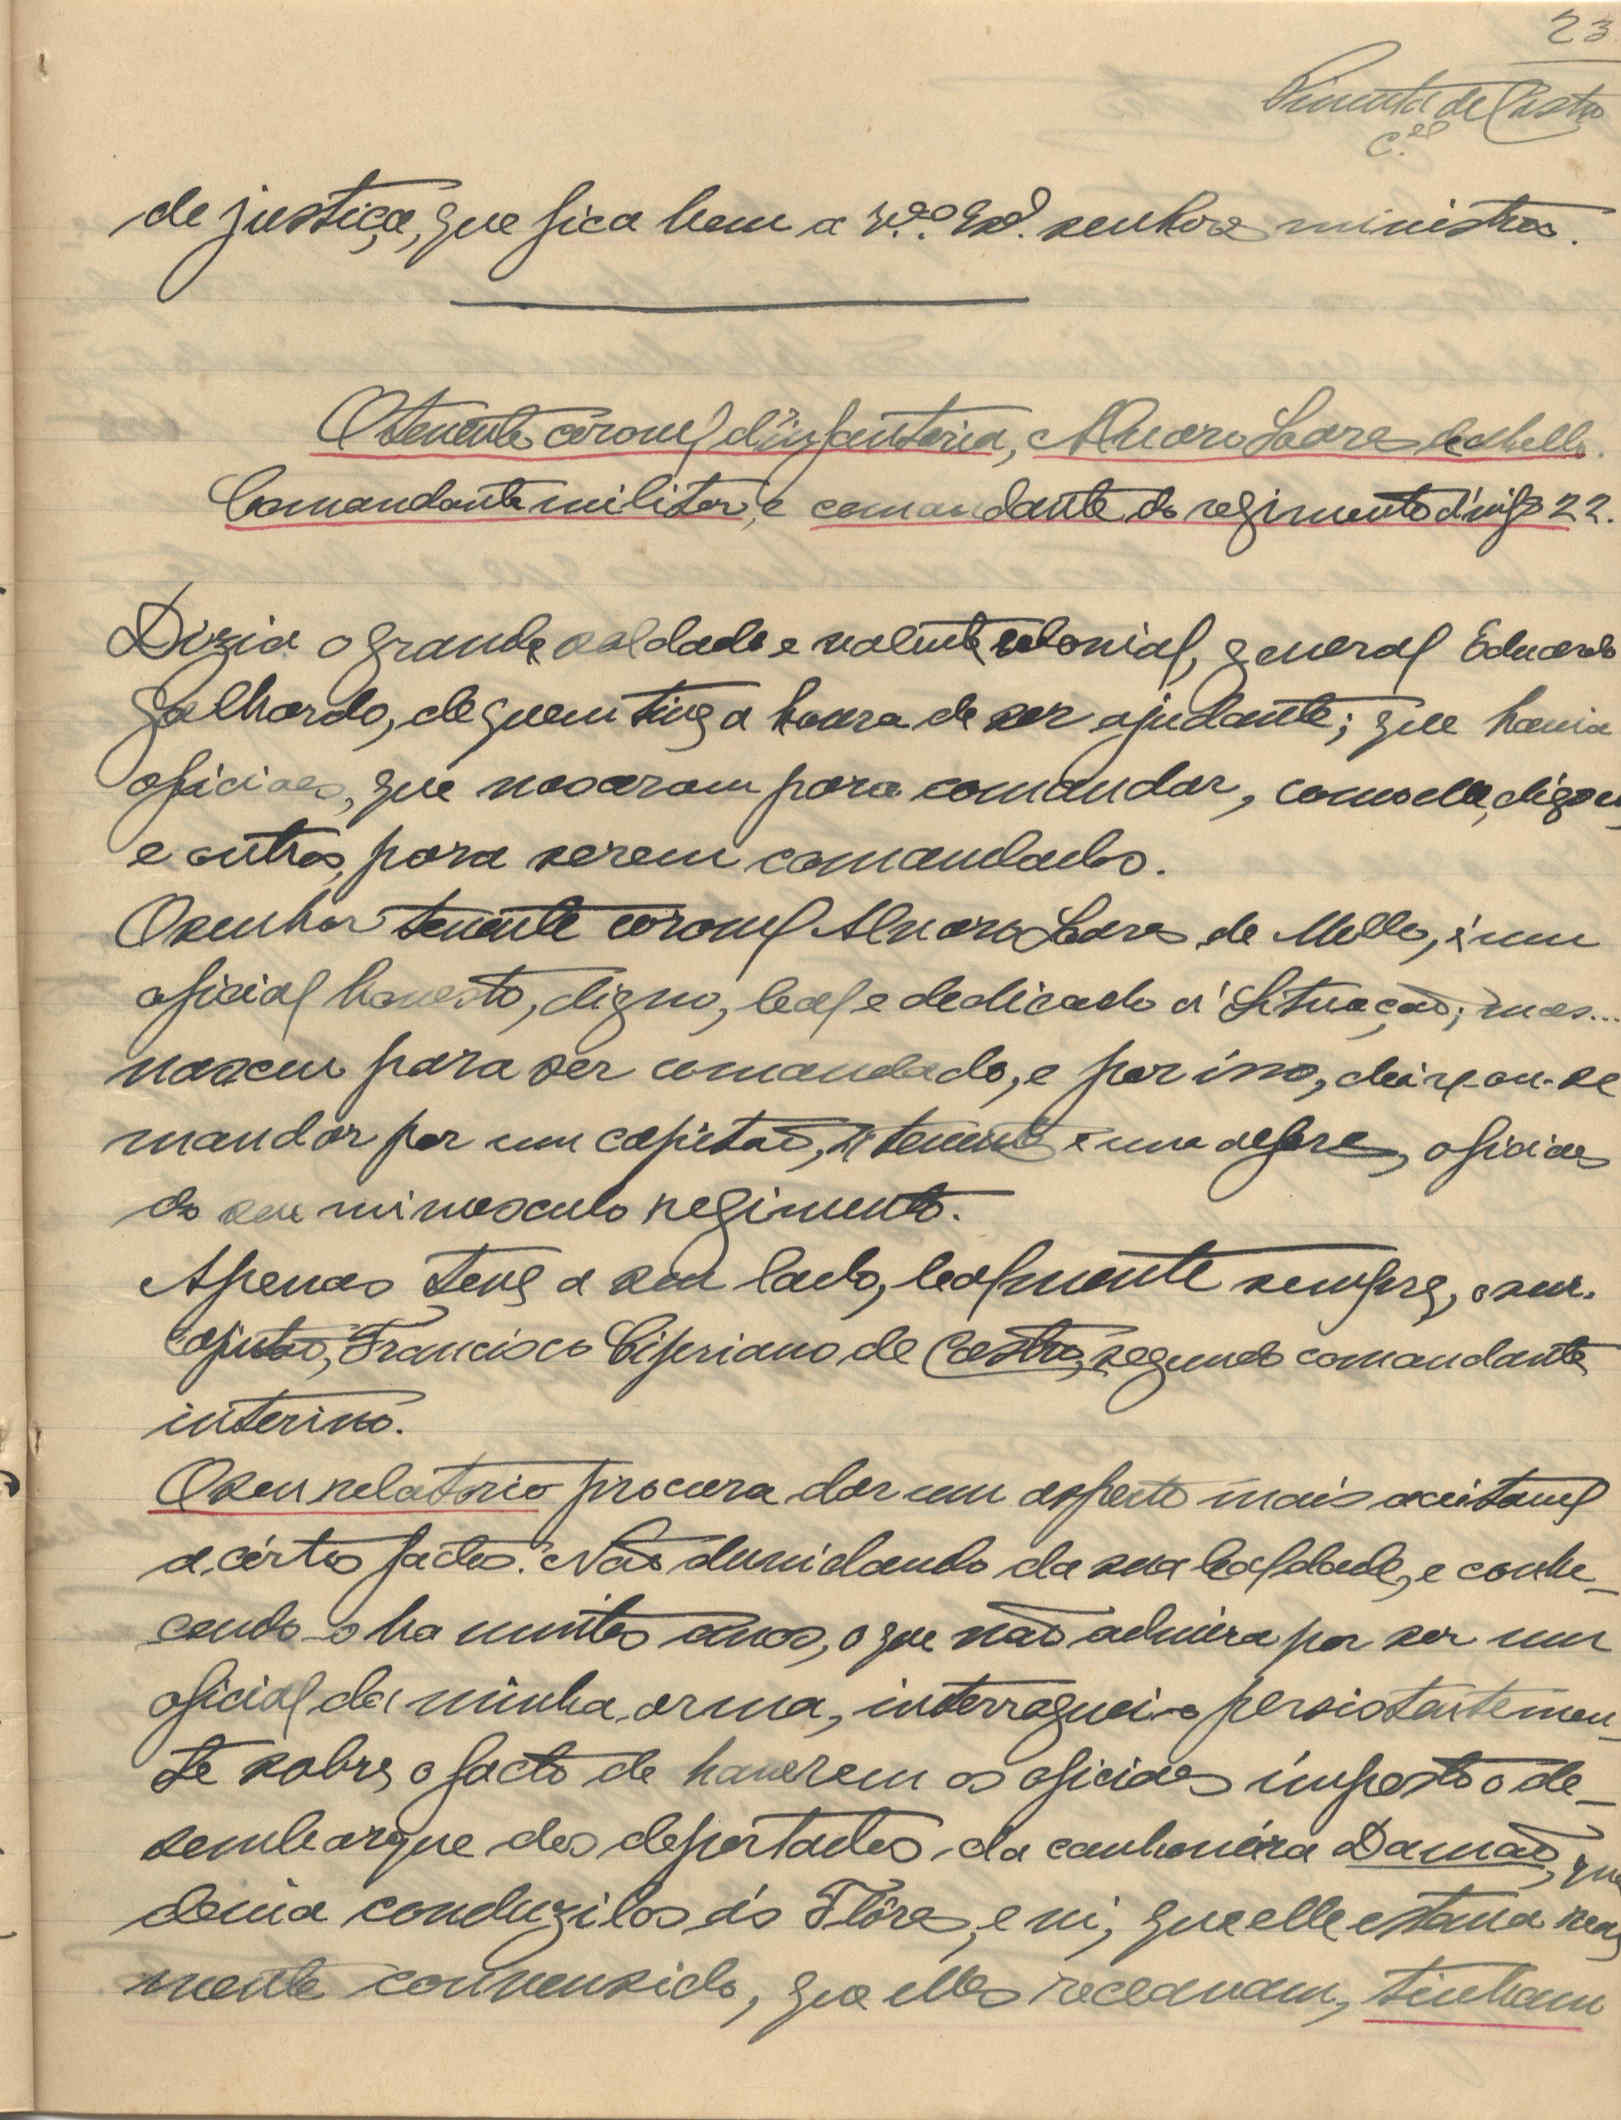 23
Pimenta de Castro
C.el
de justiça, que fica bem a V.as Ex.as senhores ministros.
O tenente coronel d'infantaria, Alvaro Soares de Mello.
Comandante militar, e comandante do regimento d'inf.a 22.
Dizia o grande soldado e valente colonial, general Eduardo
Galhardo, de quem tive a honra de ser ajudante; que havia
oficiaes, que nasceram para comandar, como elle, digo eu,
e outros, para serem comandados.
O senhor tenente coronel Alvaro Soares de Mello, é um
oficial honesto, digno, leal e dedicado á Situação; mas...
nasceu para ser comandado, e por isso, deixou-se
mandar por um capitão, tenente e um alferes, oficiaes
do seu minusculo regimento.
Apenas teve a seu lado, lealmente sempre, o seu
capitão, Francisco Cipriano de Castro, segundo comandante
interino.
O seu relatorio procura dar um aspecto mais aceitavel
a cértos factos. Não duvidando da sua lealdade, e conhe-
cendo-o ha muitos anos, o que não admira por ser um
oficial da minha arma, interroguei-o persistantemen-
te sobre o facto de haverem os oficiaes imposto o de-
sembarque dos deportados da canhonéira Damão, que
devia conduzilos ás Flôres, e vi, que elle estava rea
mente convensido, que elles receavam, tinham